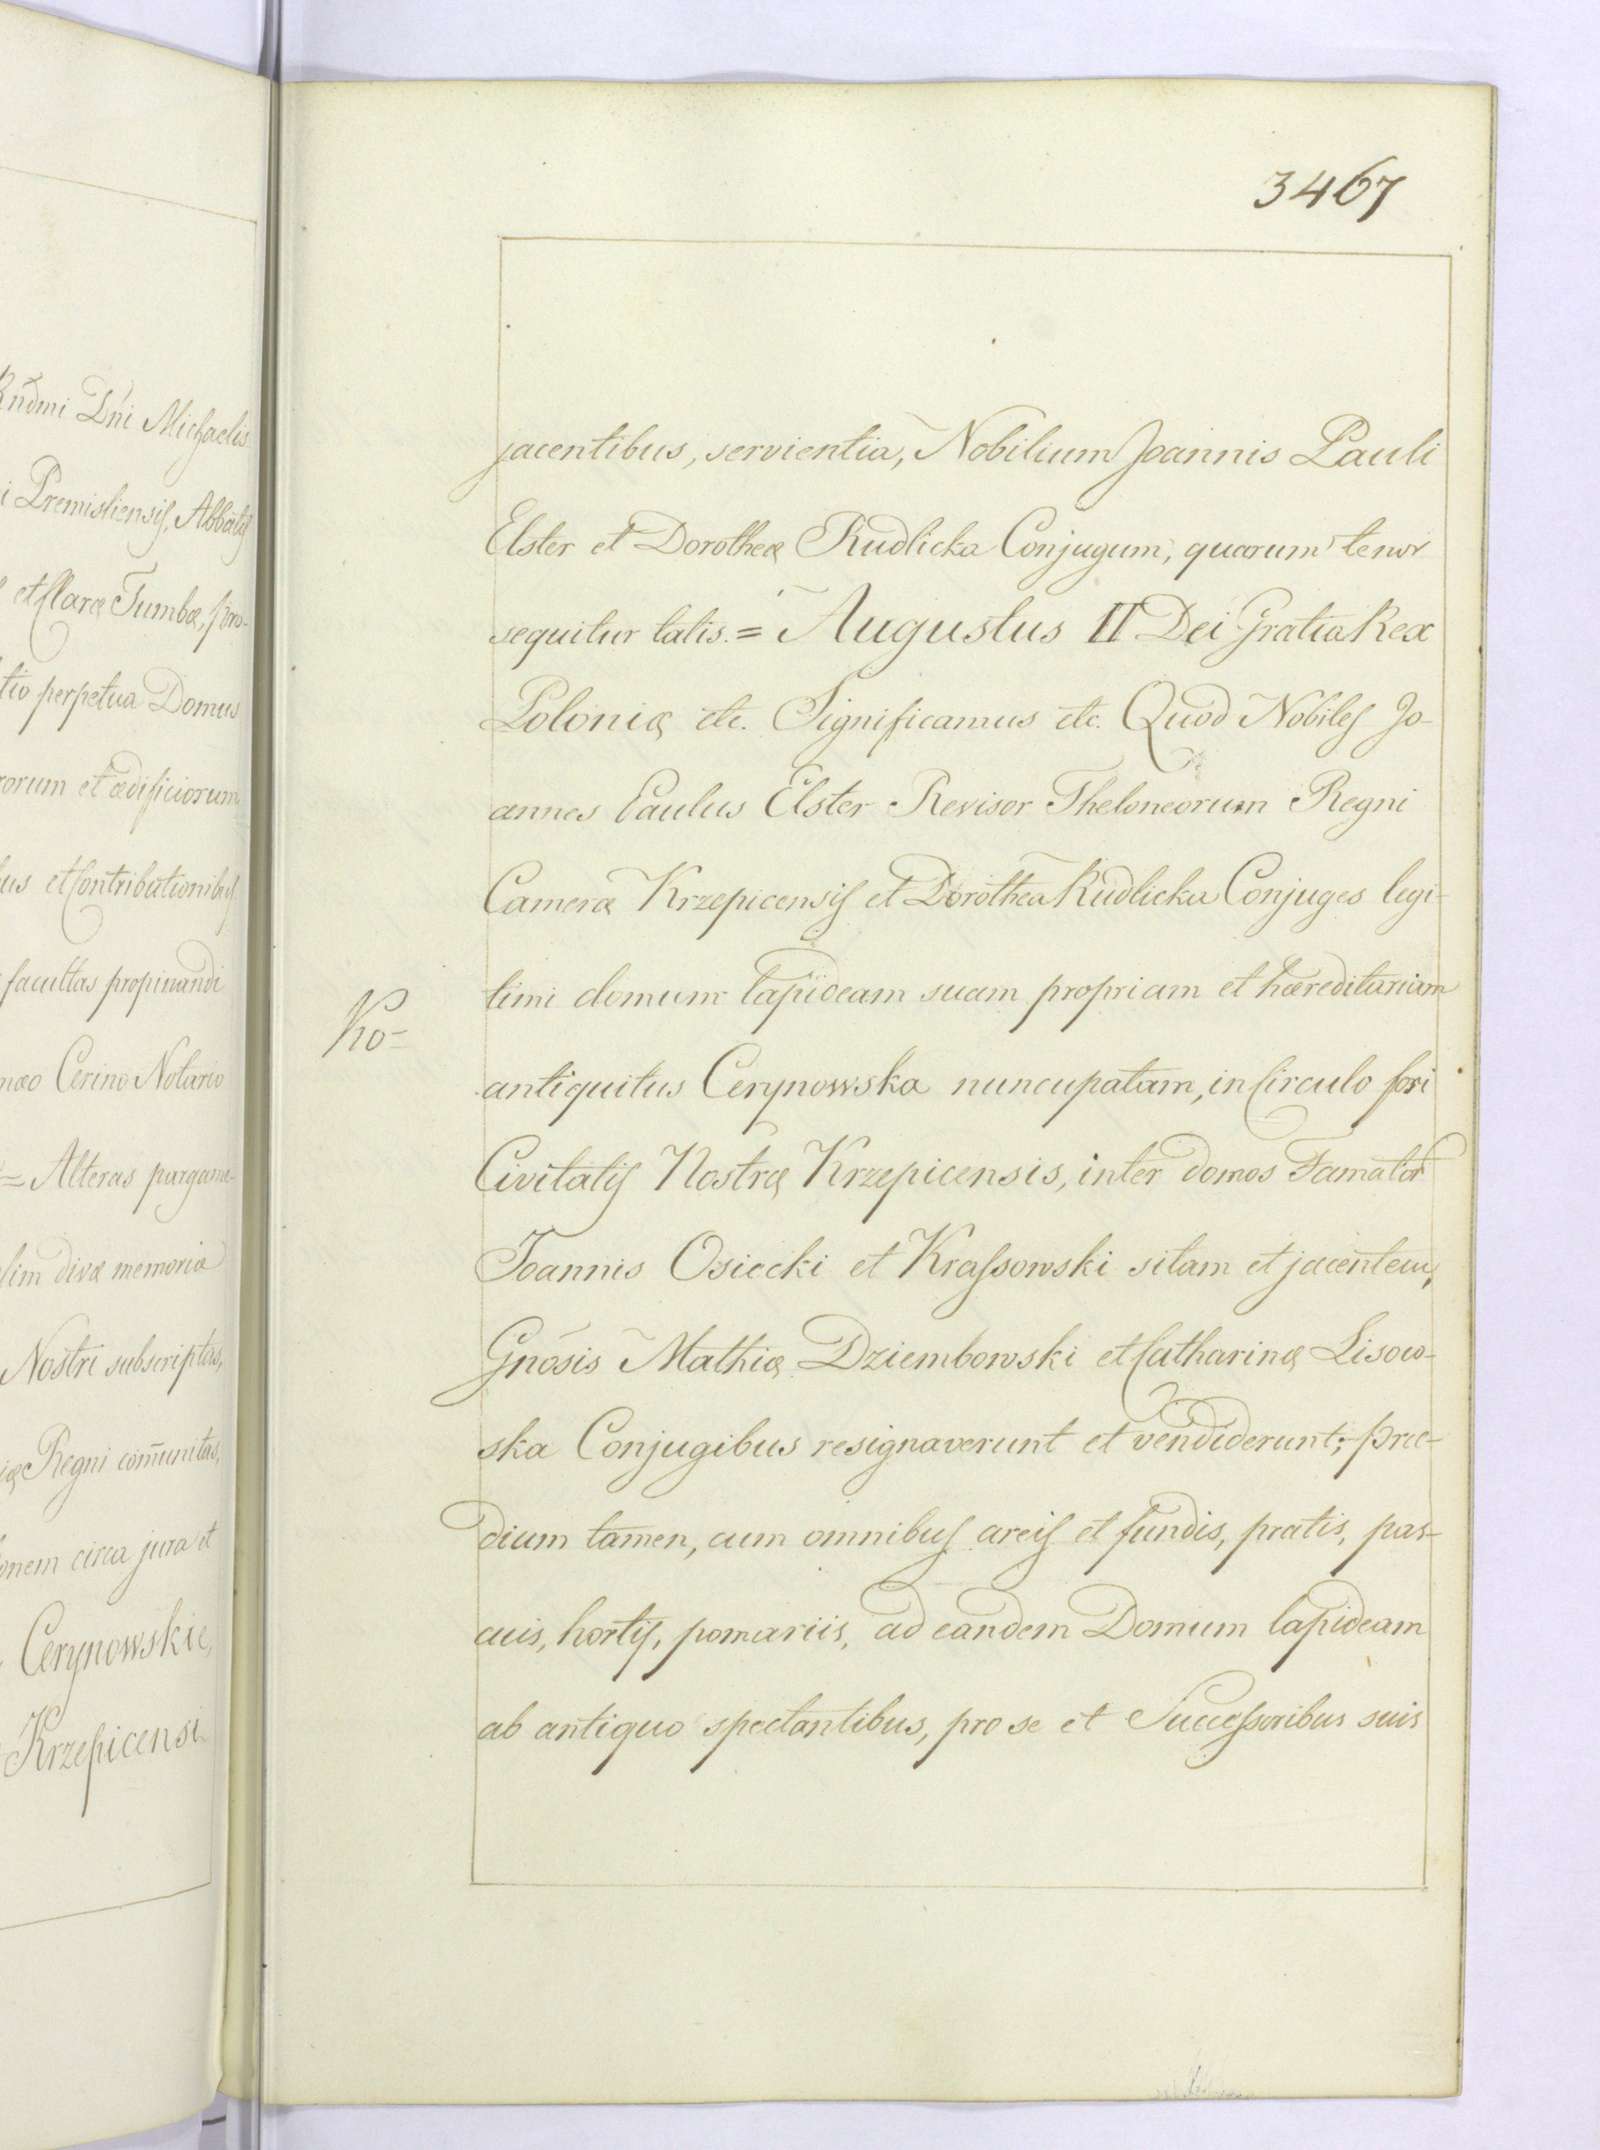 3467
Rñdmi Dñi Michaelis
i Premisliensis, Abbatis
et Claræ Tumbæ, pro-
tio perpetua Domus
rorum et ædificiorum
us et Contributionibus
facultas propinandi
mæo Cerino Notario
= Alteras pargame-
lim divæ memoriæ
Nostri subscriptas,
iæ Regni com̄unitas,
onem circa jura et
Cerynowskie,
Krzepicensi
Ko-
jacentibus, servientia, Nobilium Joannis Pauli
Elster et Dorotheæ Rudlicka Conjugum, quorum tenor
sequitur talis. = Augustus II Dei Gratia Rex
Poloniæ etc. Significamus etc. Quod Nobiles Jo-
annes Paulus Elster Revisor Theloneorum Regni
Cameræ Krzepicensis et Dorothea Rudlicka Conjuges legi-
timi domum lapideam suam propriam et hæreditariam
antiquitus Cerynowska nuncupatam, in Circulo fori
Civitatis Nostræ Krzepicensis, inter domos Famator
Joannis Osiecki et Krassowski sitam et jacentem,
Gnósis Mathiæ Dziembowski et Catharinæ Lisow-
ska Conjugibus resignaverunt et vendiderunt; præ-
dium tamen, cum omnibus areis et fundis, pratis, pas-
cuis, hortis, pomariis, ad eandem Domum lapideam
ab antiquo spectantibus, pro se et Successoribus suis